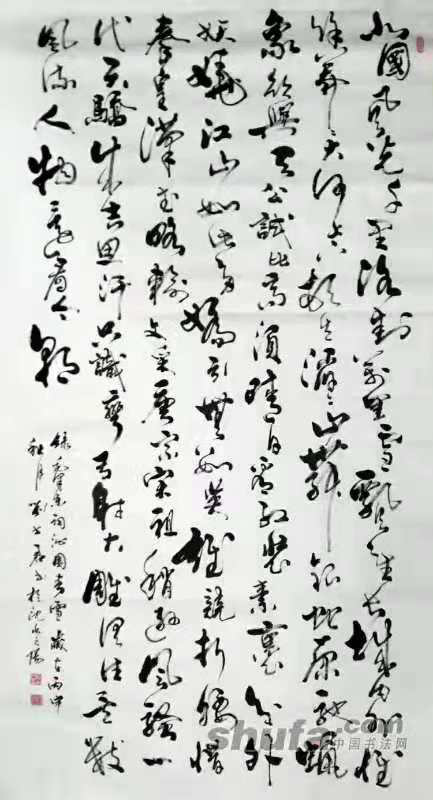 北國風光千里冰封萬里雪飄望長城內外惟
餘莽莽大河上下頓失滔滔山舞銀蛇原馳蠟
象欲與天公試比高須晴日看紅裝素裹分外
妖嬈江山如此多嬌引無數英雄競折腰惜
秦皇漢武略輸文采唐宗宋祖稍遜風騷一
代天驕成吉思汗只識彎弓射大雕俱往矣數
風流人物還看今朝
錄毛澤東詞沁園春雪歲在丙申
秋月書於沈水之陽
shufa.com
中国书法网